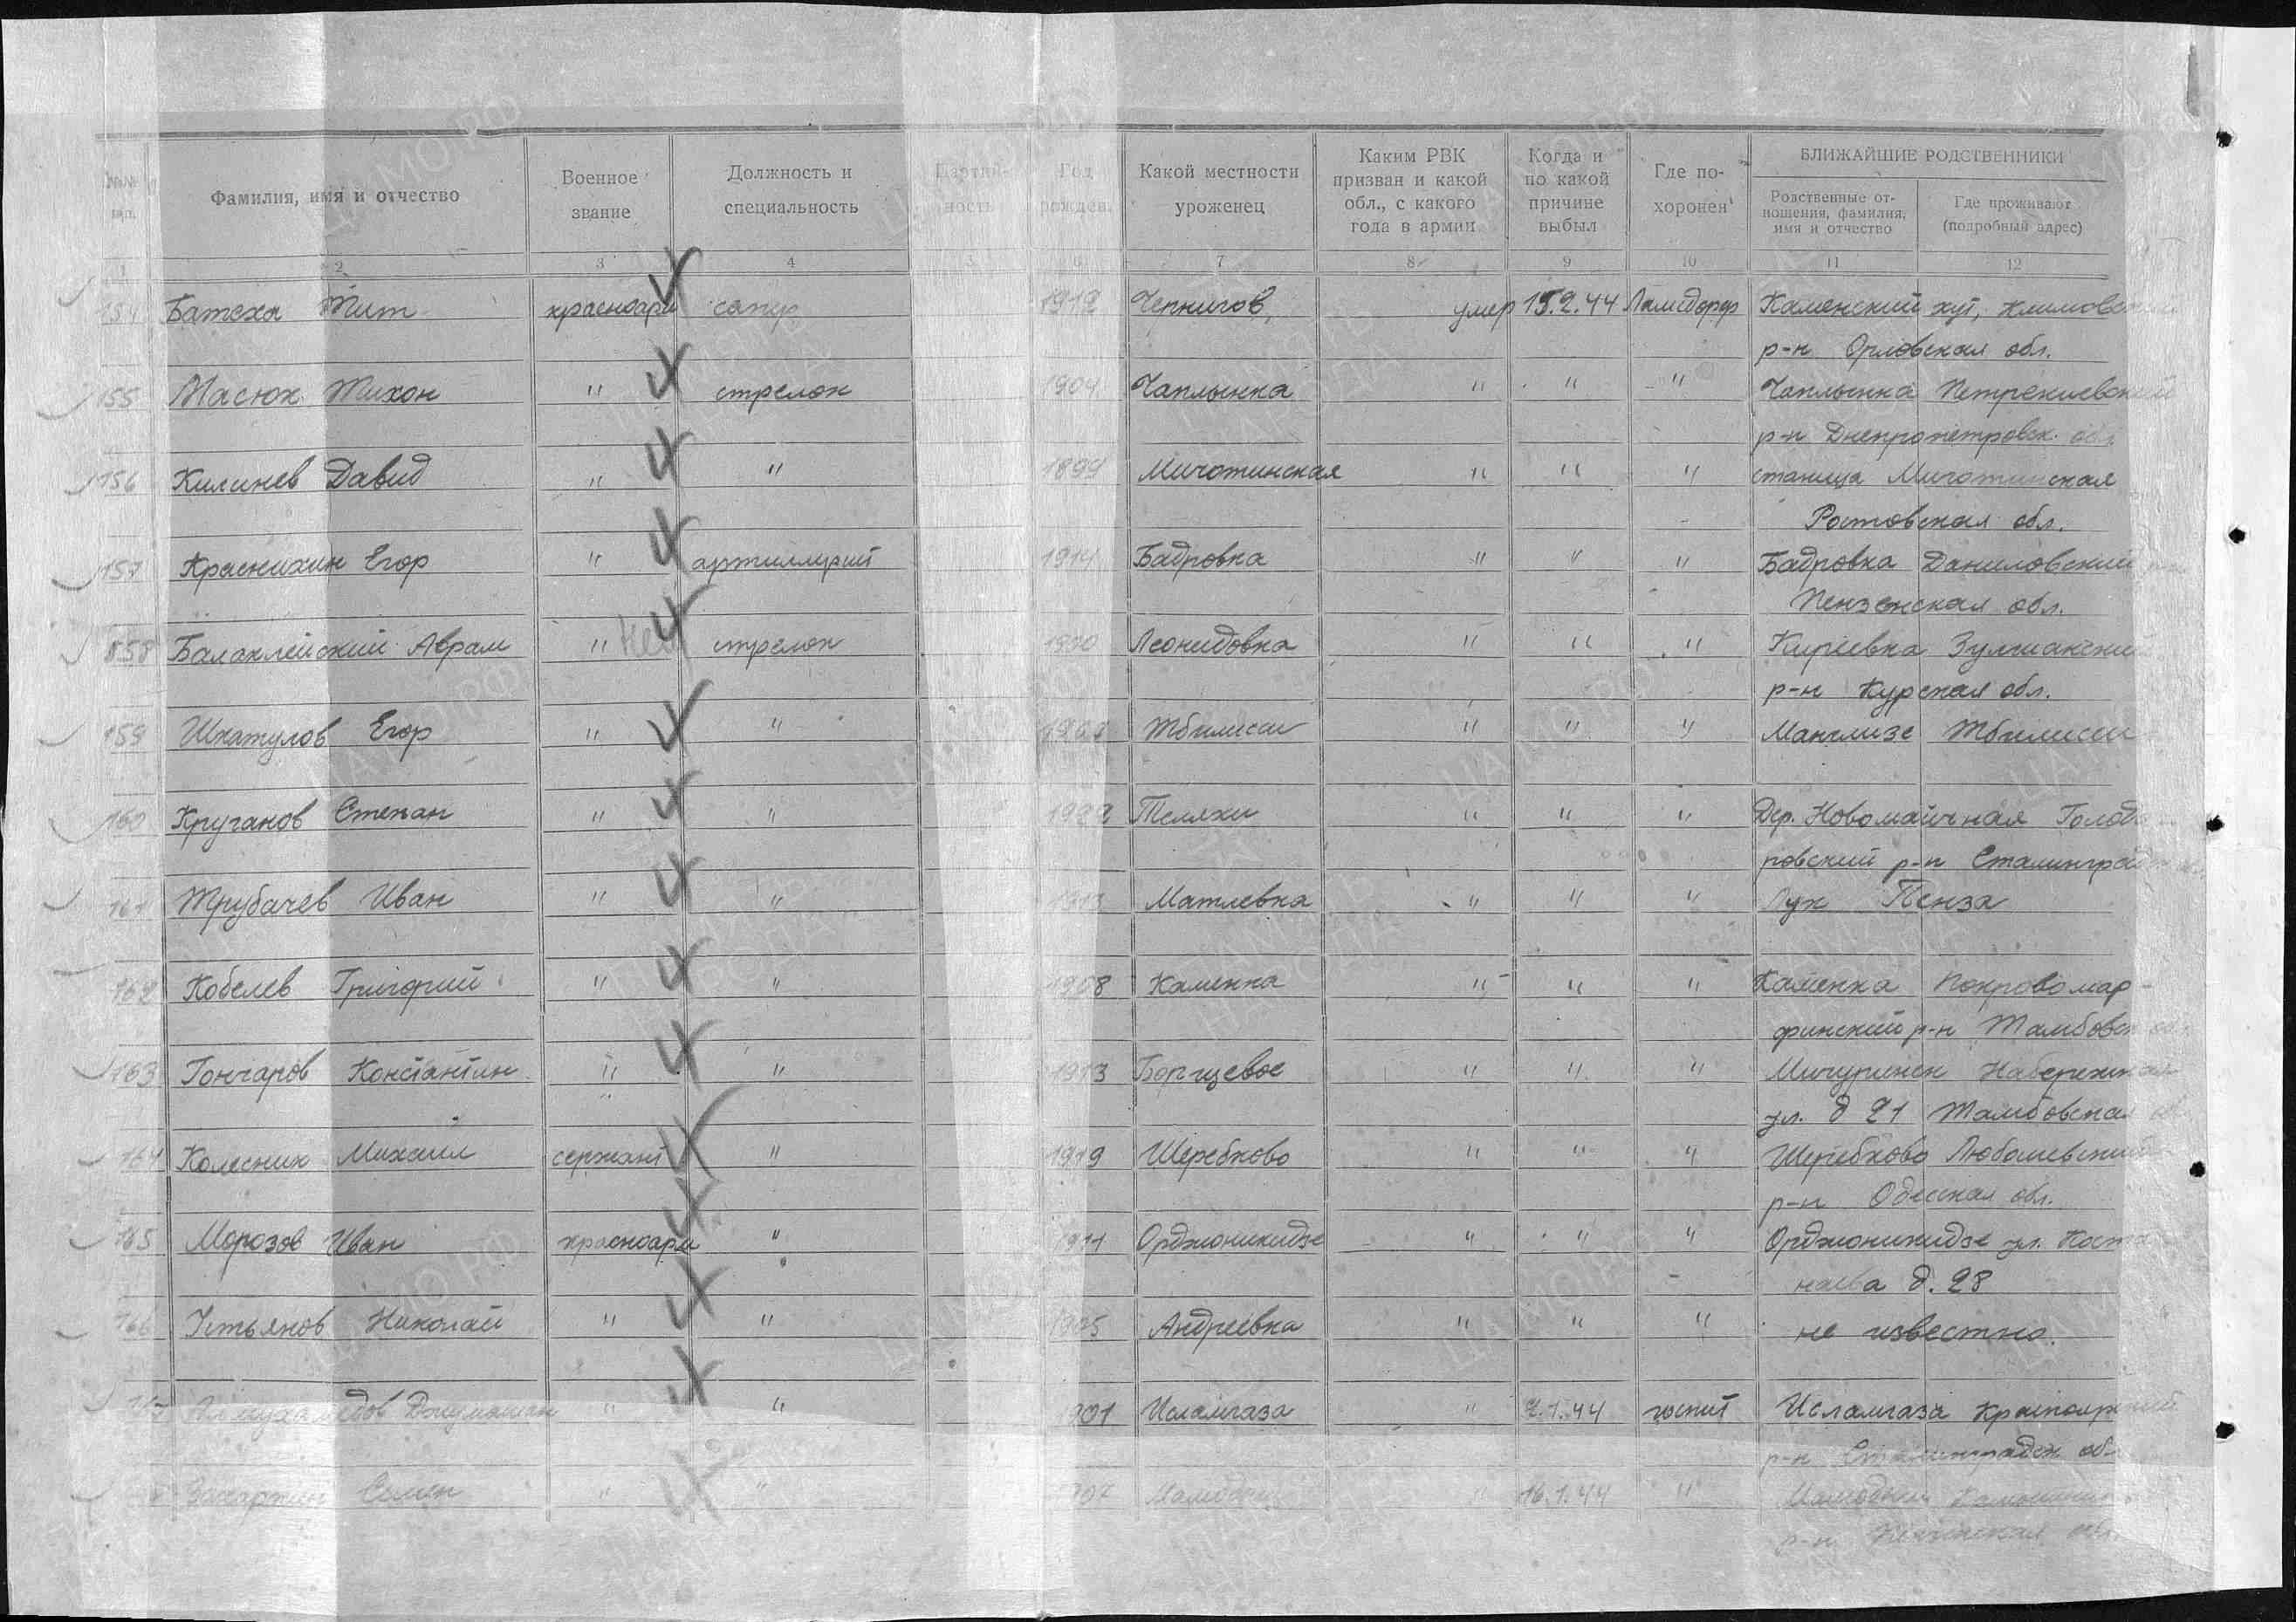 №№ п.п.
Фамилия, имя и отчество
Военное звание
Должность и специальность
Партий- ность
Год рожден.
Какой местности уроженец
Каким РВК призван и какой обл., с какого года в армии
Когда и по какой причине выбыл
Где по- хоронен
БЛИЖАЙШИЕ РОДСТВЕННИКИ
Родственные от- ношения, фамилия, имя и отчество
Где проживают (подробный адрес)
1 2 3 4 5 6 7 8 9 10 11 12
154 Батеха Тит красноарм сапер 1912 Чернигов, умер 15.2.44 Ламсдорф Каменский хут, Климовский
р-н Орловская обл.
155 Масюк Тихон " стрелок 1904 Чаплынка " " " Чаплынка
р-н Днепропетровск. обл.
156 Килинев Давид " " 1899 Миготинская " " " станица Миготинская
Ростовская обл.
157 Краснихин Егор " артиллерист 1914 Бадровка " " " Бадровка Даниловский
Пензенская обл.
158 Балаклейский Аврам " Нет стрелок Леонидовка " " " Киреевка
р-н Курская обл.
159 Шкатулов Егор " " Тбилиси " " " Манглизе Тбилиси
160 Круганов Степан " " 1922 Теляхи " " " Дер. Новомаичная Голода-
ровский р-н Сталинград
161 Трубачев Иван " " 1913 Матлевка " " " Лук Пенза
162 Кобелев Григорий " " 1908 Каменка " " " Каменка Покровомар-
финский р-н Тамбовск
163 Гончаров Константин " " 1913 Борщевое " " " Мичуринск Набережная
ул. д 21 Тамбовская
164 Колесник Михаил сержант " 1919 Шеребково " " " Шеребково Любашевский
р-н Одесская обл.
165 Морозов Иван красноарм " 1911 Орджоникидзе " " " Орджоникидзе ул. Коста
наева д. 28
166 Устьянов Николай " " 1905 Андреевка " " " не известно.
167 " " 1901 Исламгаза " 2.1.44 госпит Исламгаза Красноярский
р-н Сталинградск об-
Захаркин Семен " " 1907 " 16.1.44 "
р-н обл.
ЦАМО РФ
ПАМЯТЬ НАРОДА